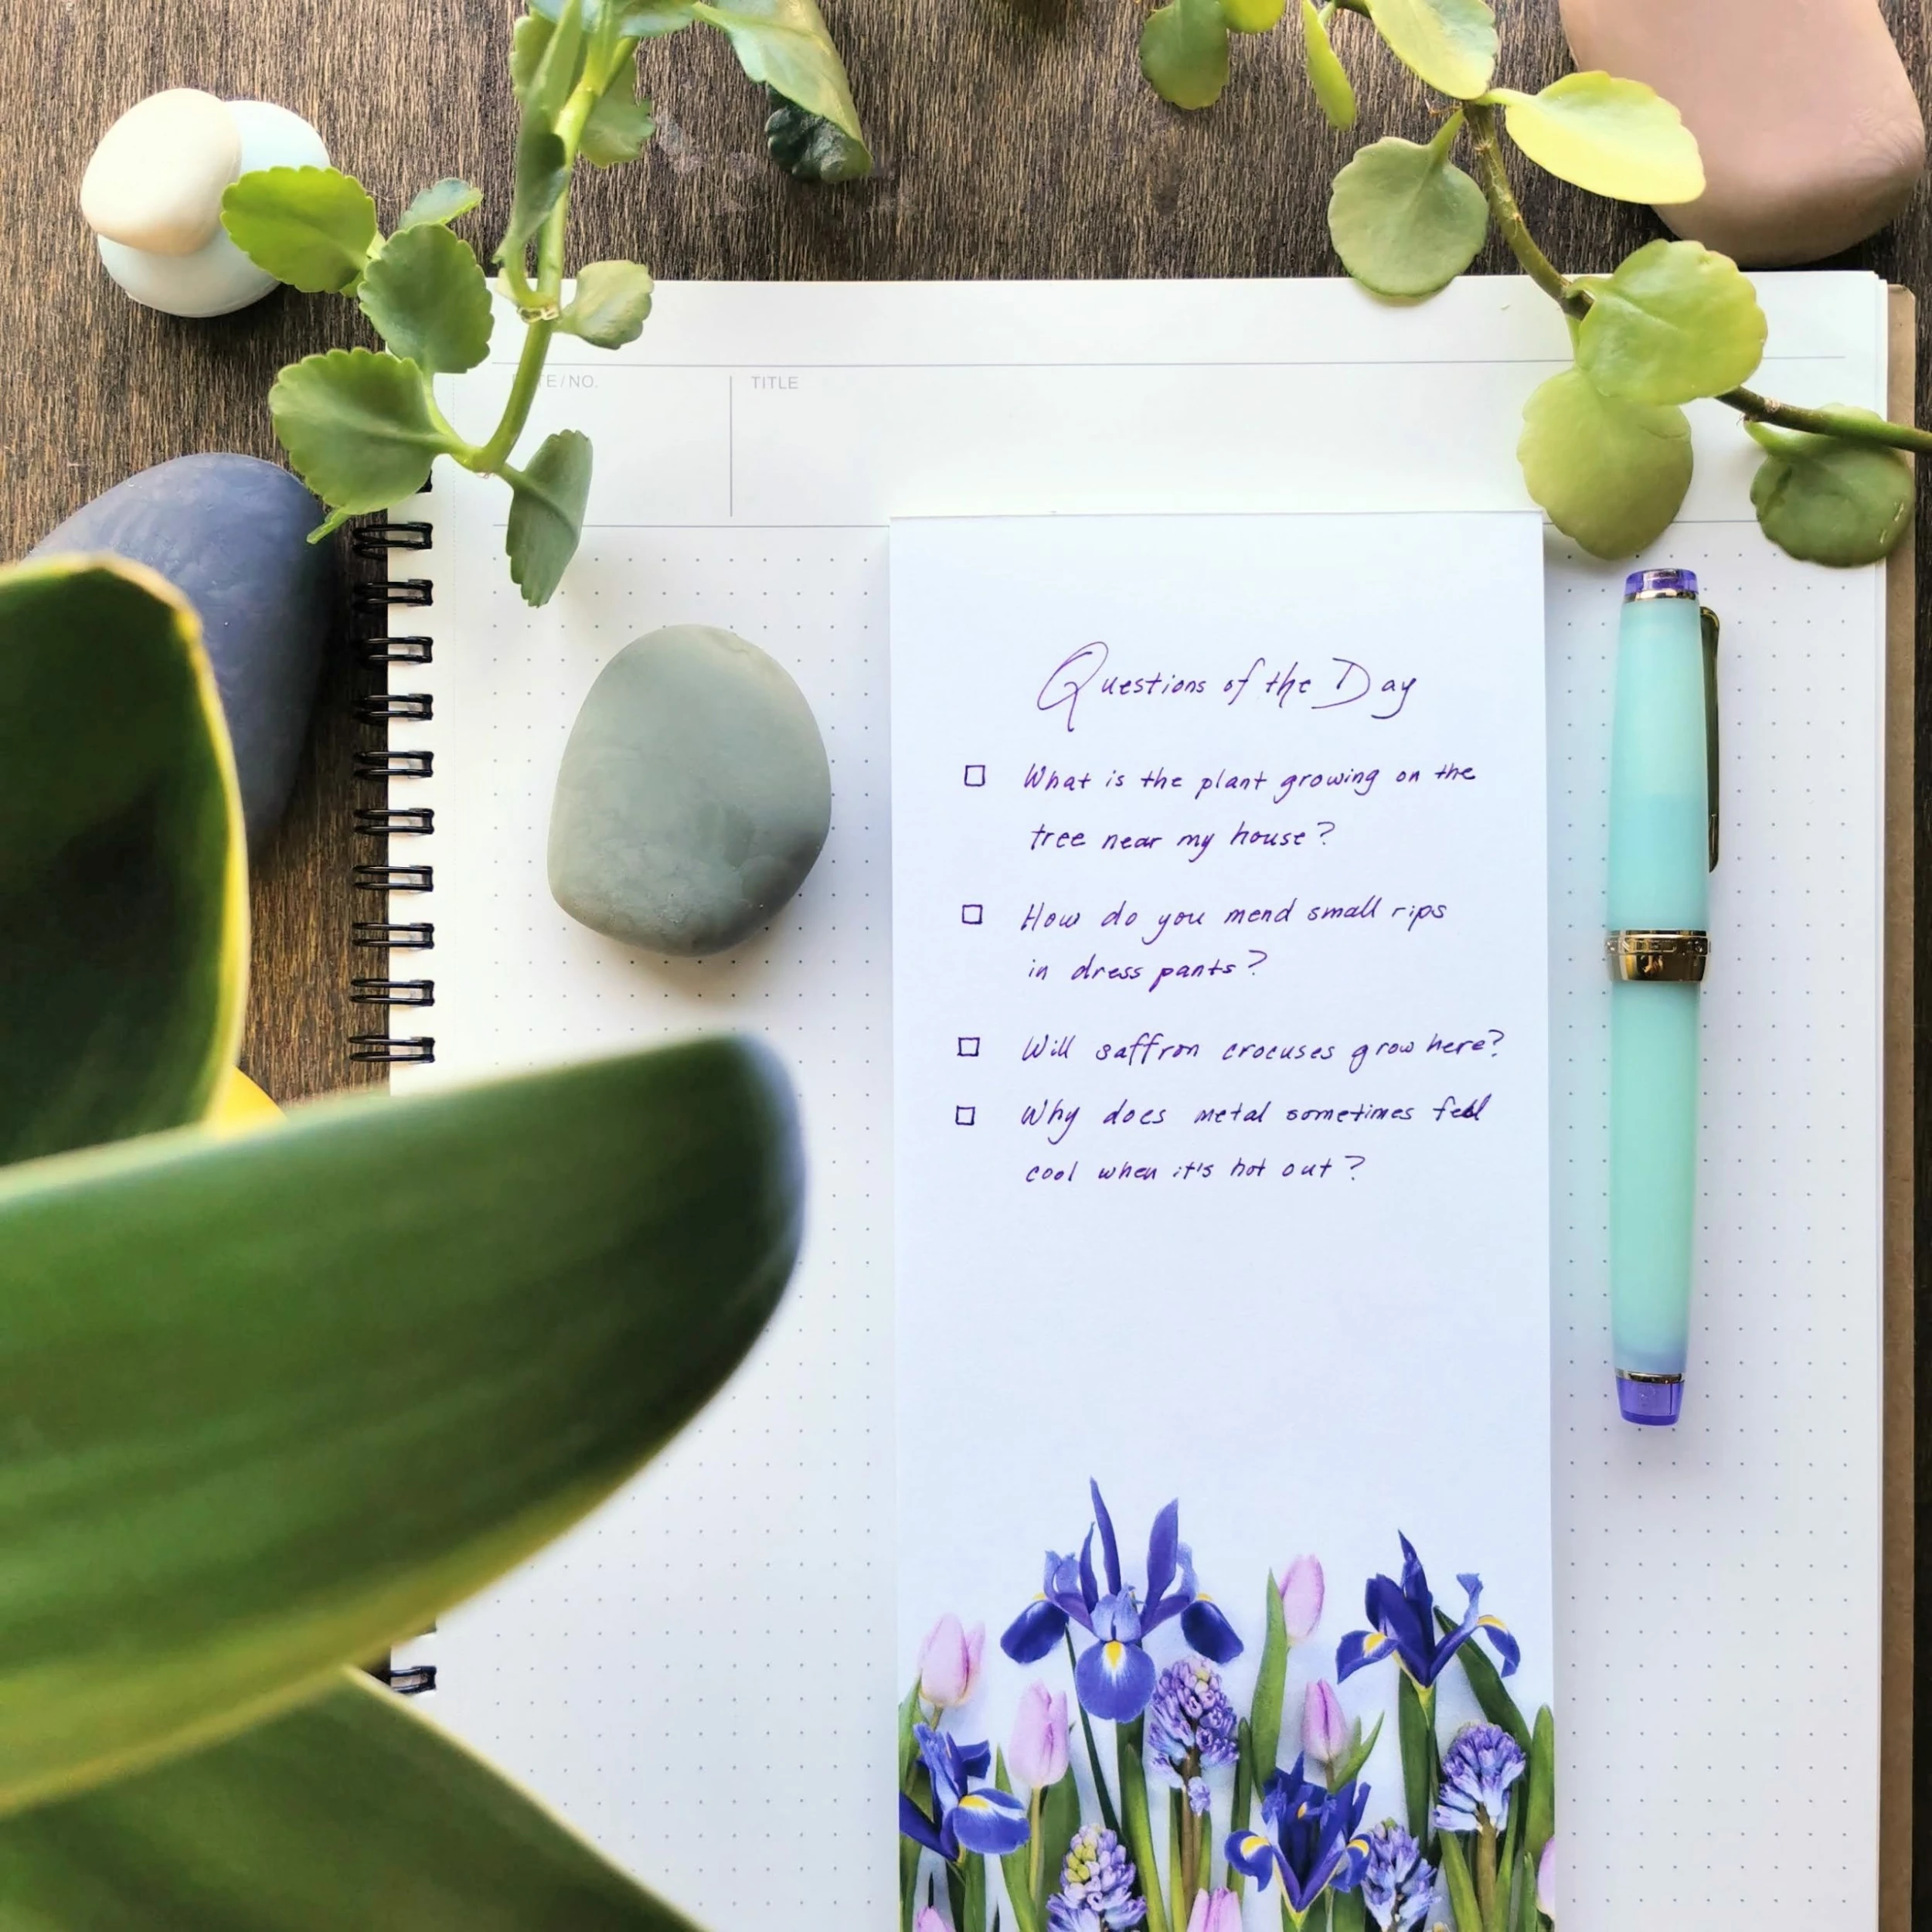 TE/NO.
TITLE
Questions of the Day
What is the plant growing on the
tree near my house?
How do you mend small rips
in dress pants?
Will saffron crocuses grow here?
Why does metal sometimes feel
cool when it's hot out?